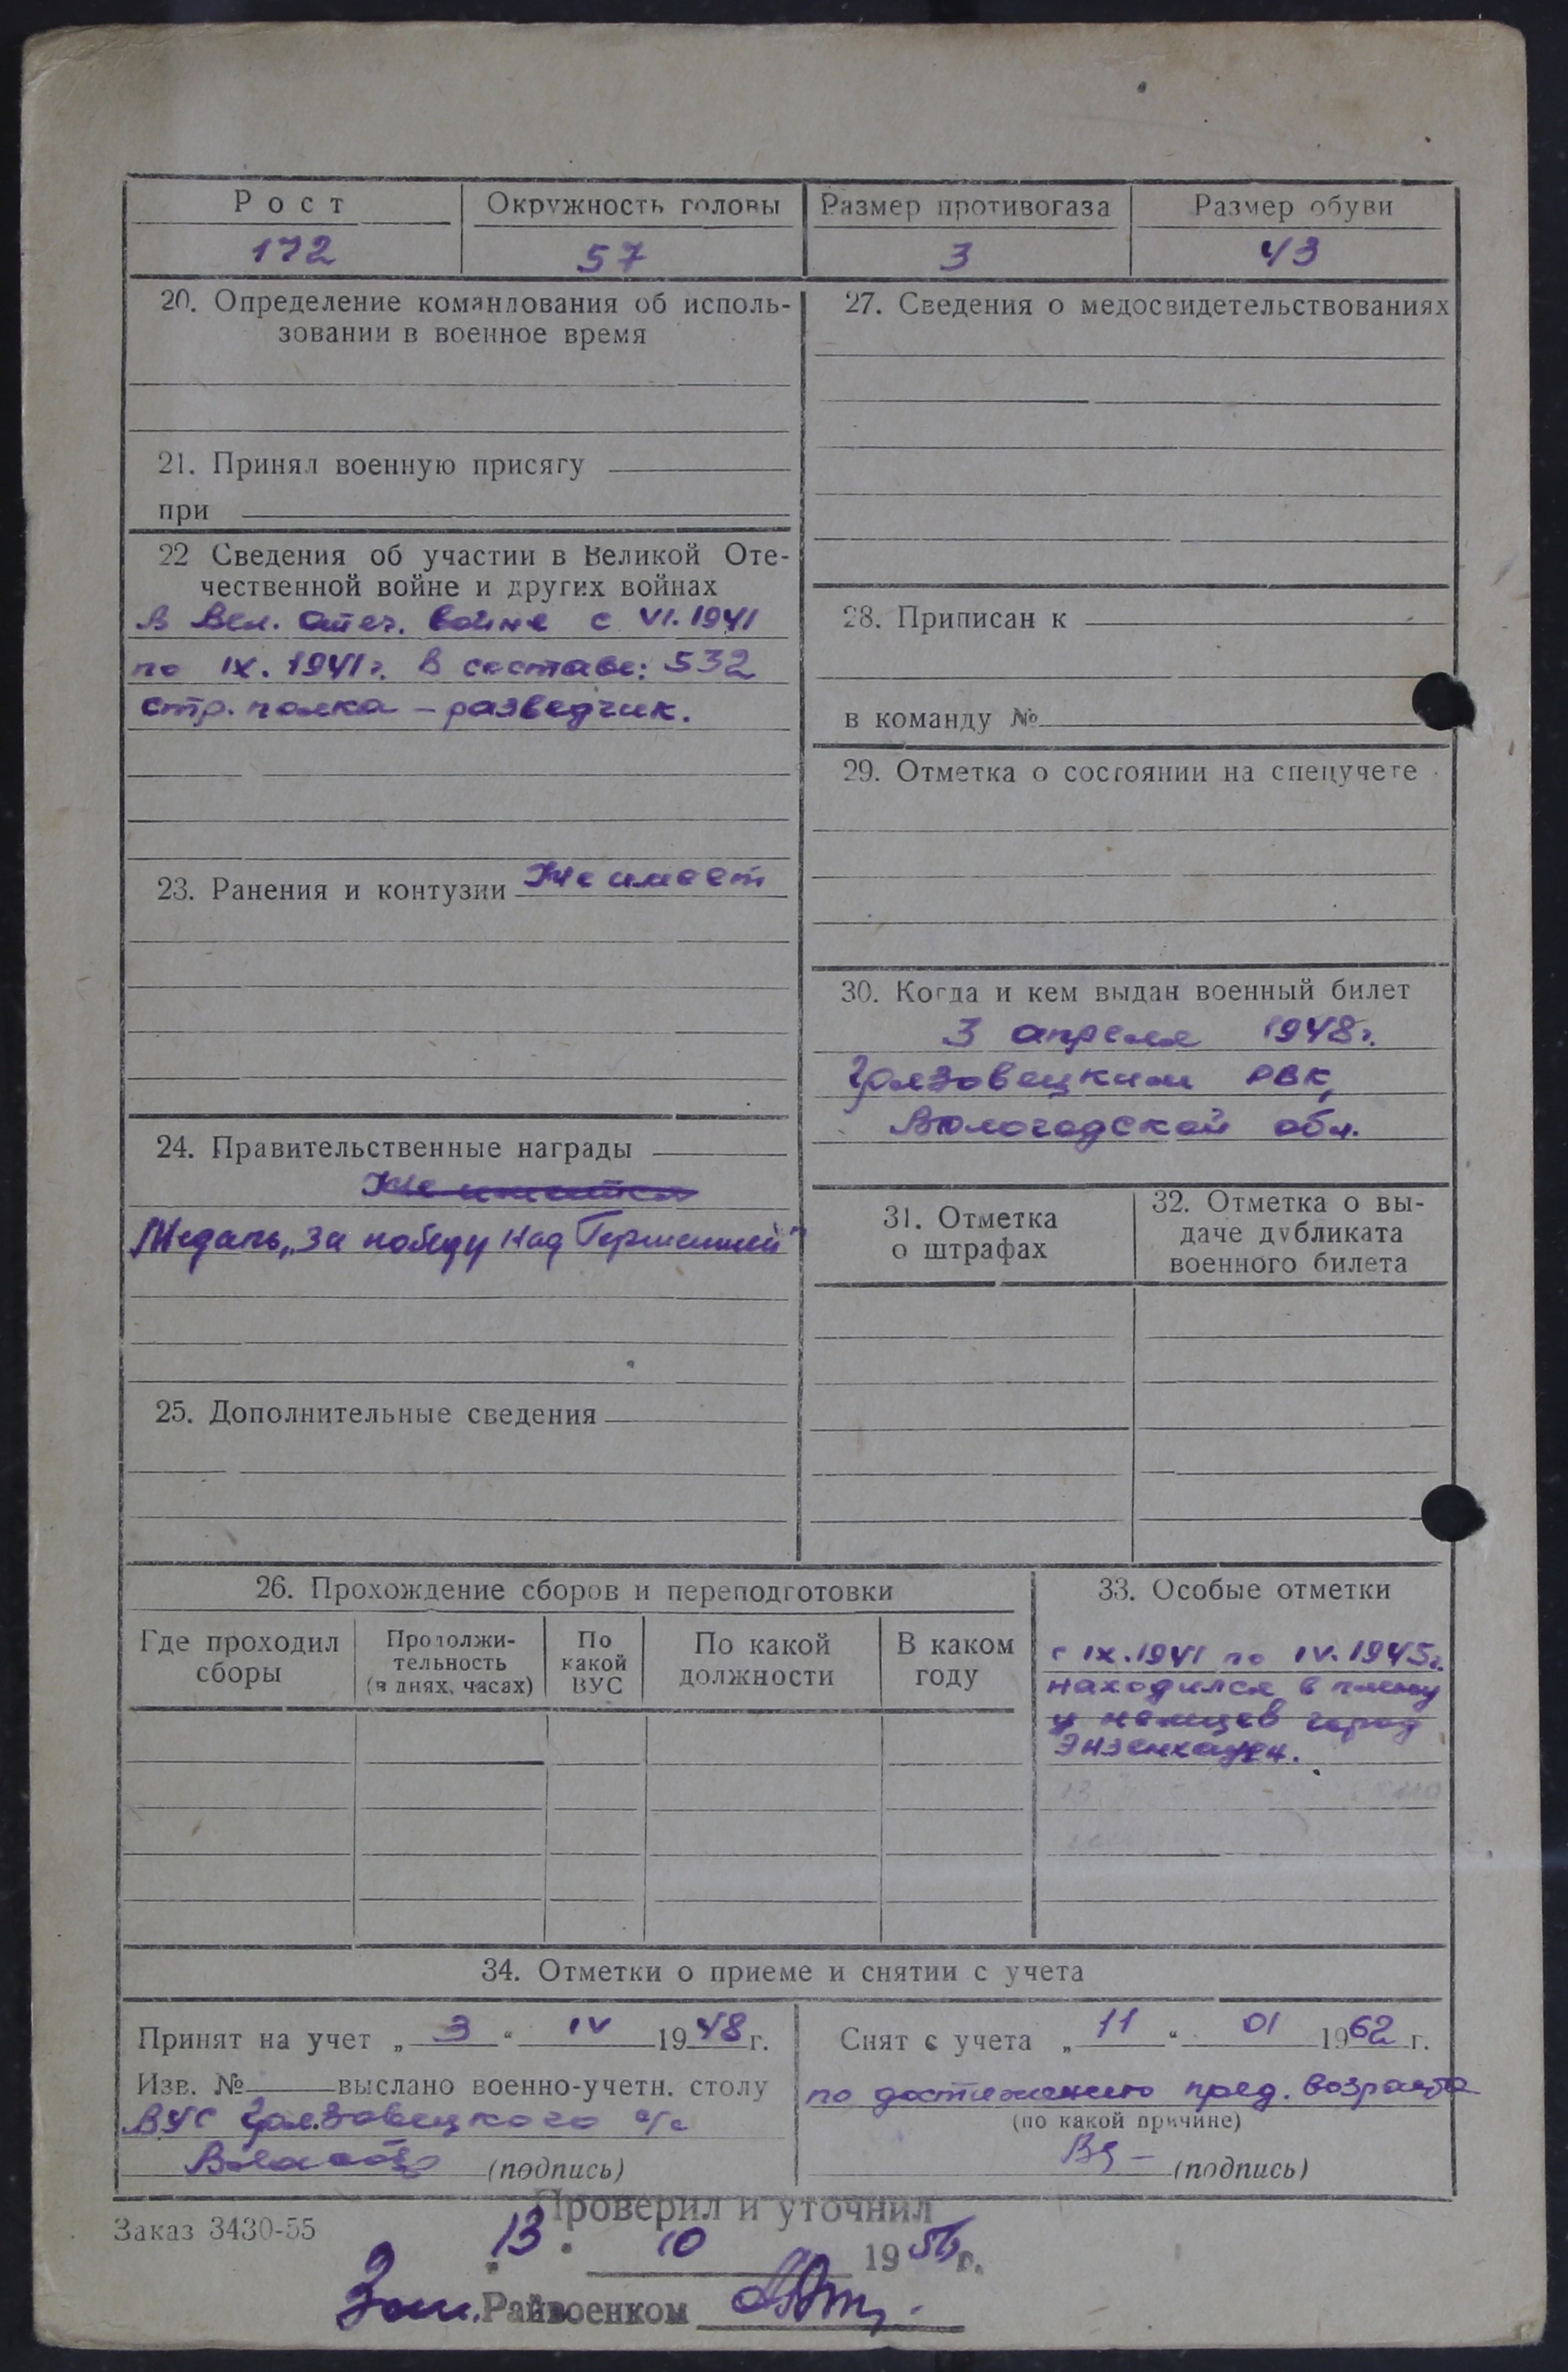 Рост
Окружность головы
Размер противогаза
Размер обуви
172
57
3
43
20. Определение командования об исполь-
зовании в военное время
21. Принял военную присягу
при
22 Сведения об участии в Великой Оте-
чественной войне и других войнах
в Вел. Отеч. войне с VI. 1941
по IX. 1941 г. в составе: 532
стр. полка – разведчик.
23. Ранения и контузии Не имеет
24. Правительственные награды
Не имеет
Медаль „За победу над Германией"
25. Дополнительные сведения
27. Сведения о медосвидетельствованиях
28. Приписан к
в команду №
29. Отметка о состоянии на спецучете
30. Когда и кем выдан военный билет
3 апреля 1948 г.
Грязовецким РВК,
Вологодской обл.
31. Отметка
о штрафах
32. Отметка о вы-
даче дубликата
военного билета
26. Прохождение сборов и переподготовки
Где проходил
сборы
Продолжи-
тельность
(в днях, часах)
По
какой
ВУС
По какой
должности
В каком
году
33. Особые отметки
с IX. 1941 по IV. 1945 г.
находился в плену
у немцев город
34. Отметки о приеме и снятии с учета
Принят на учет „3" IV 1948 г.
Изв. № выслано военно-учетн. столу
ВУС Грязовецкого с/с
(подпись)
Снят с учета „11" 01 1962 г.
по достижению пред. возраста
(по какой причине)
(подпись)
Заказ 3430-55
Проверил и уточнил
13. 10 1956 г.
Зам. Райвоенком